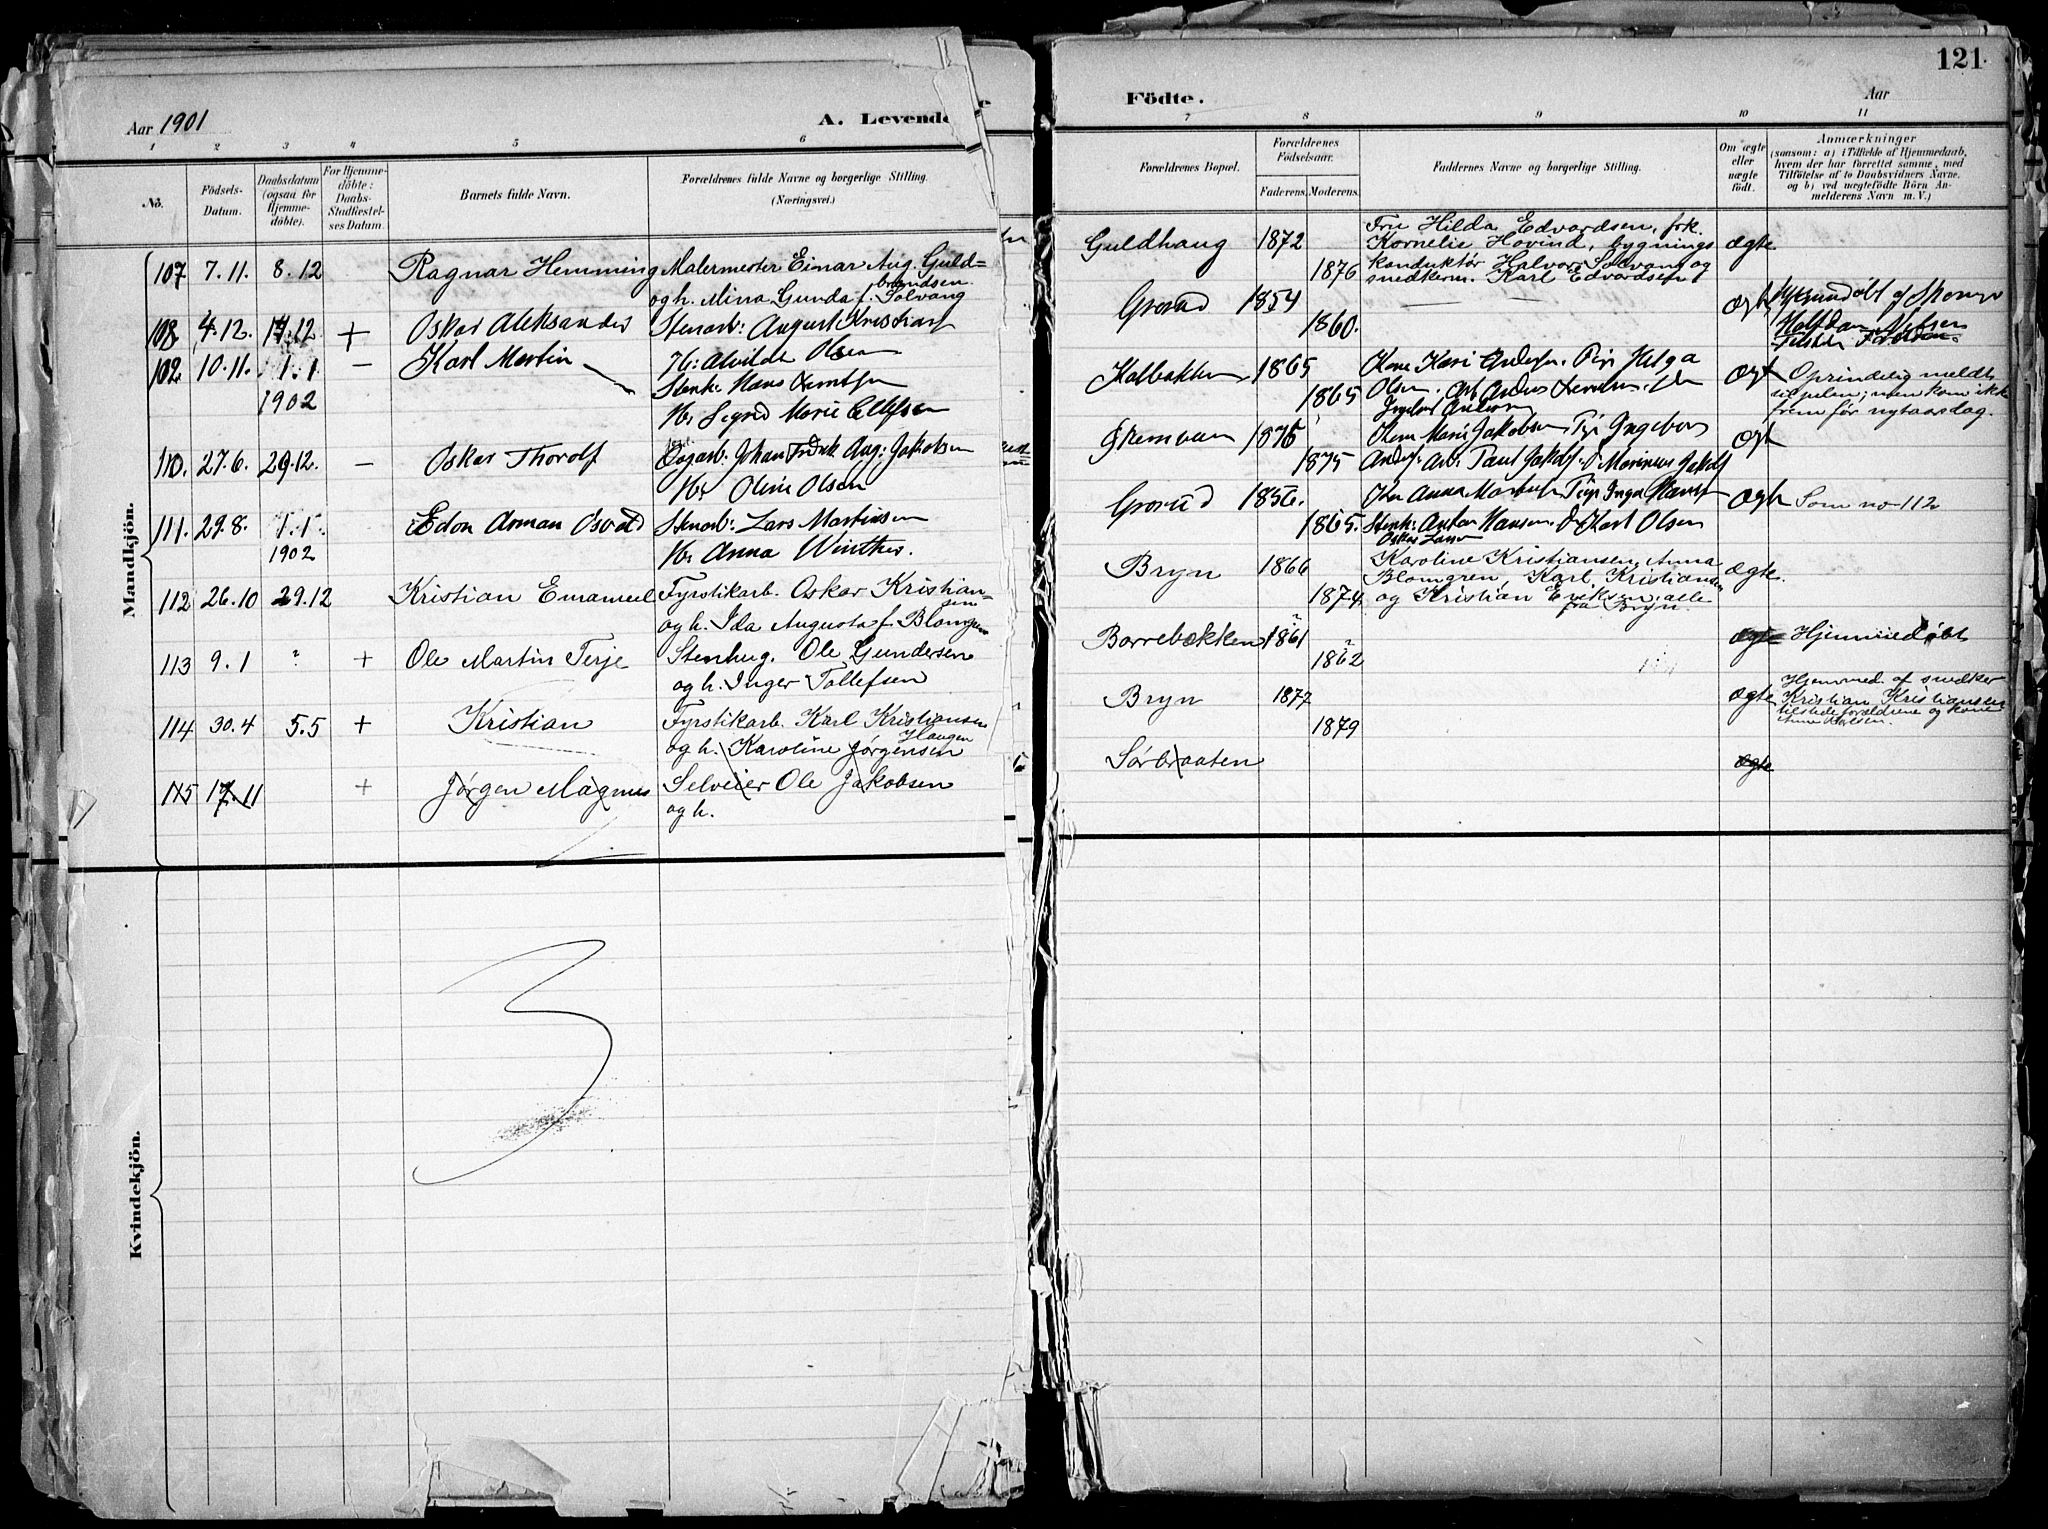 121
Aar 1901
A. Levende
Födte.
Aar
1 2 3 4 5 6 7 8 9 10 11
No.
Födsels-Datum.
Daabsdatum (ogsaa for Hjemmedöbte).
For Hjemmedöbte: Daabs-Stadfæstelses Datum.
Barnets fulde Navn.
Forældrenes fulde Navne og borgerlige Stilling. (Næringsvei.)
Forældrenes Bopæl.
Forældrenes Födselsaar.
Faderens. Moderens.
Faddernes Navne og borgerlige Stilling.
Om ægte eller uægte födt.
Anmærkninger
(saasom: a) i Tilfælde af Hjemmedaab, hvem der har forrettet samme, med Tilföielse af to Daabsvidners Navne, og b) ved uægtefödte Börn Anmelderens Navn m. V.)
Mandkjön.
107 7.11. 8.12 Ragnar Hemming Malermester Einar Aug. Guldbrandsen
og h. Mina Gunda f. Solvang
Guldhaug 1872 1876
Fru Hilda Edvardsen, frk.
Kornelie Hovind, bygnings
konduktør Halvor Solvang og
snedkerm. Karl Edvardsen
ægte
108. 4.12. 17.12 + Oskar Aleksander Stenarb: August Kristians
H: Alvilde Olsen
Grorud 1854 1860.
— — —
ægt
Halfdan Nilsen
109. 10.11. 1.1 1902 — Karl Martin
Stenh: Hans
Hu Sigrid Marie Ellefsen
Kalbakken 1865 1865
Kone Kari Andersen, Pige Helga
Olsen, Arb. Anders
ægt
Oprindelig meldt
til julen, men kom ikke
frem før nytaarsdag.
110. 27.6. 29.12. — Oskar Thorolf
Dagarb. Johan Fredrik Aug: Jakobsen
Hu Oline Olsen
1875 1875
Kone Marie Jakobsen Pige Ingeborg
Anders. Arb: Paul Jakobs. Marinus Jakobs
ægt
111. 29.8. 1.1. 1902 Edon Arman Osvald Stenarb: Lars Martinsen
Hu Anna Winther.
Grorud 1856. 1865.
Kone Anna Pige Inga Hansen
Stenh: Anton Hansen. Do Karl Olsen
Oskar Larsen
ægt
Som no 112
112 26.10 29.12 Kristian Emanuel Fyrstikarb. Oskar Kristiansen
og h. Ida Augusta f. Blomgren
Bryn 1866 1874
Karoline Kristiansen, Anna
Blomgren, Karl Kristiansen
og Kristian Eriksen, alle
fra Bryn.
ægte.
113 9.1 ? + Ole Martin Terje Stenhug. Ole Gundersen
og h. Inger Tollefsen
Borrebækken 1861 1862
ægte Hjemmedøbt
114 30.4 5.5 + Kristian Fyrstikarb. Karl Kristiansen
Haugen
og h. Karoline Jørgensen
Bryn 1877 1879
ægte
Hjemmed. af snedker
Kristian Kristiansen
tilstede forældrene og kone
Anne Karlsen.
115 17.11 + Jørgen Magnus Selveier Ole Jakobsen
og h.
Sørbraaten
ægte
Kvindekjön.